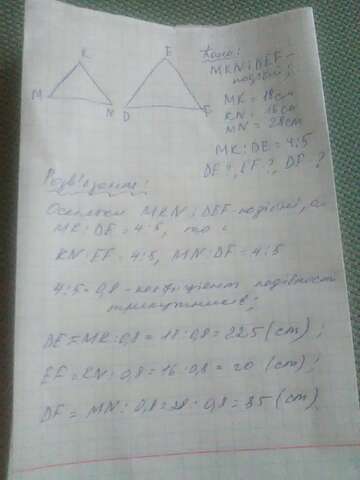 K
M
N
E
D
F
MKN і DEF –
подібні;
MK = 18 см
KN = 16 см
MN = 28 см
MK : DE = 4:5
DE ?, EF ?, DF ?
Розв'язання:
Оскільки MKN і DEF подібні, а
MK : DE = 4:5, то :
KN : EF = 4:5, MN : DF = 4:5
4:5 = 0,8 – коефіцієнт подібності
трикутників;
DE = MK : 0,8 = 18 : 0,8 = 22,5 (cm) ;
EF = KN : 0,8 = 16 : 0,8 = 20 (cm) ;
DF = MN : 0,8 = 28 : 0,8 = 35 (cm)